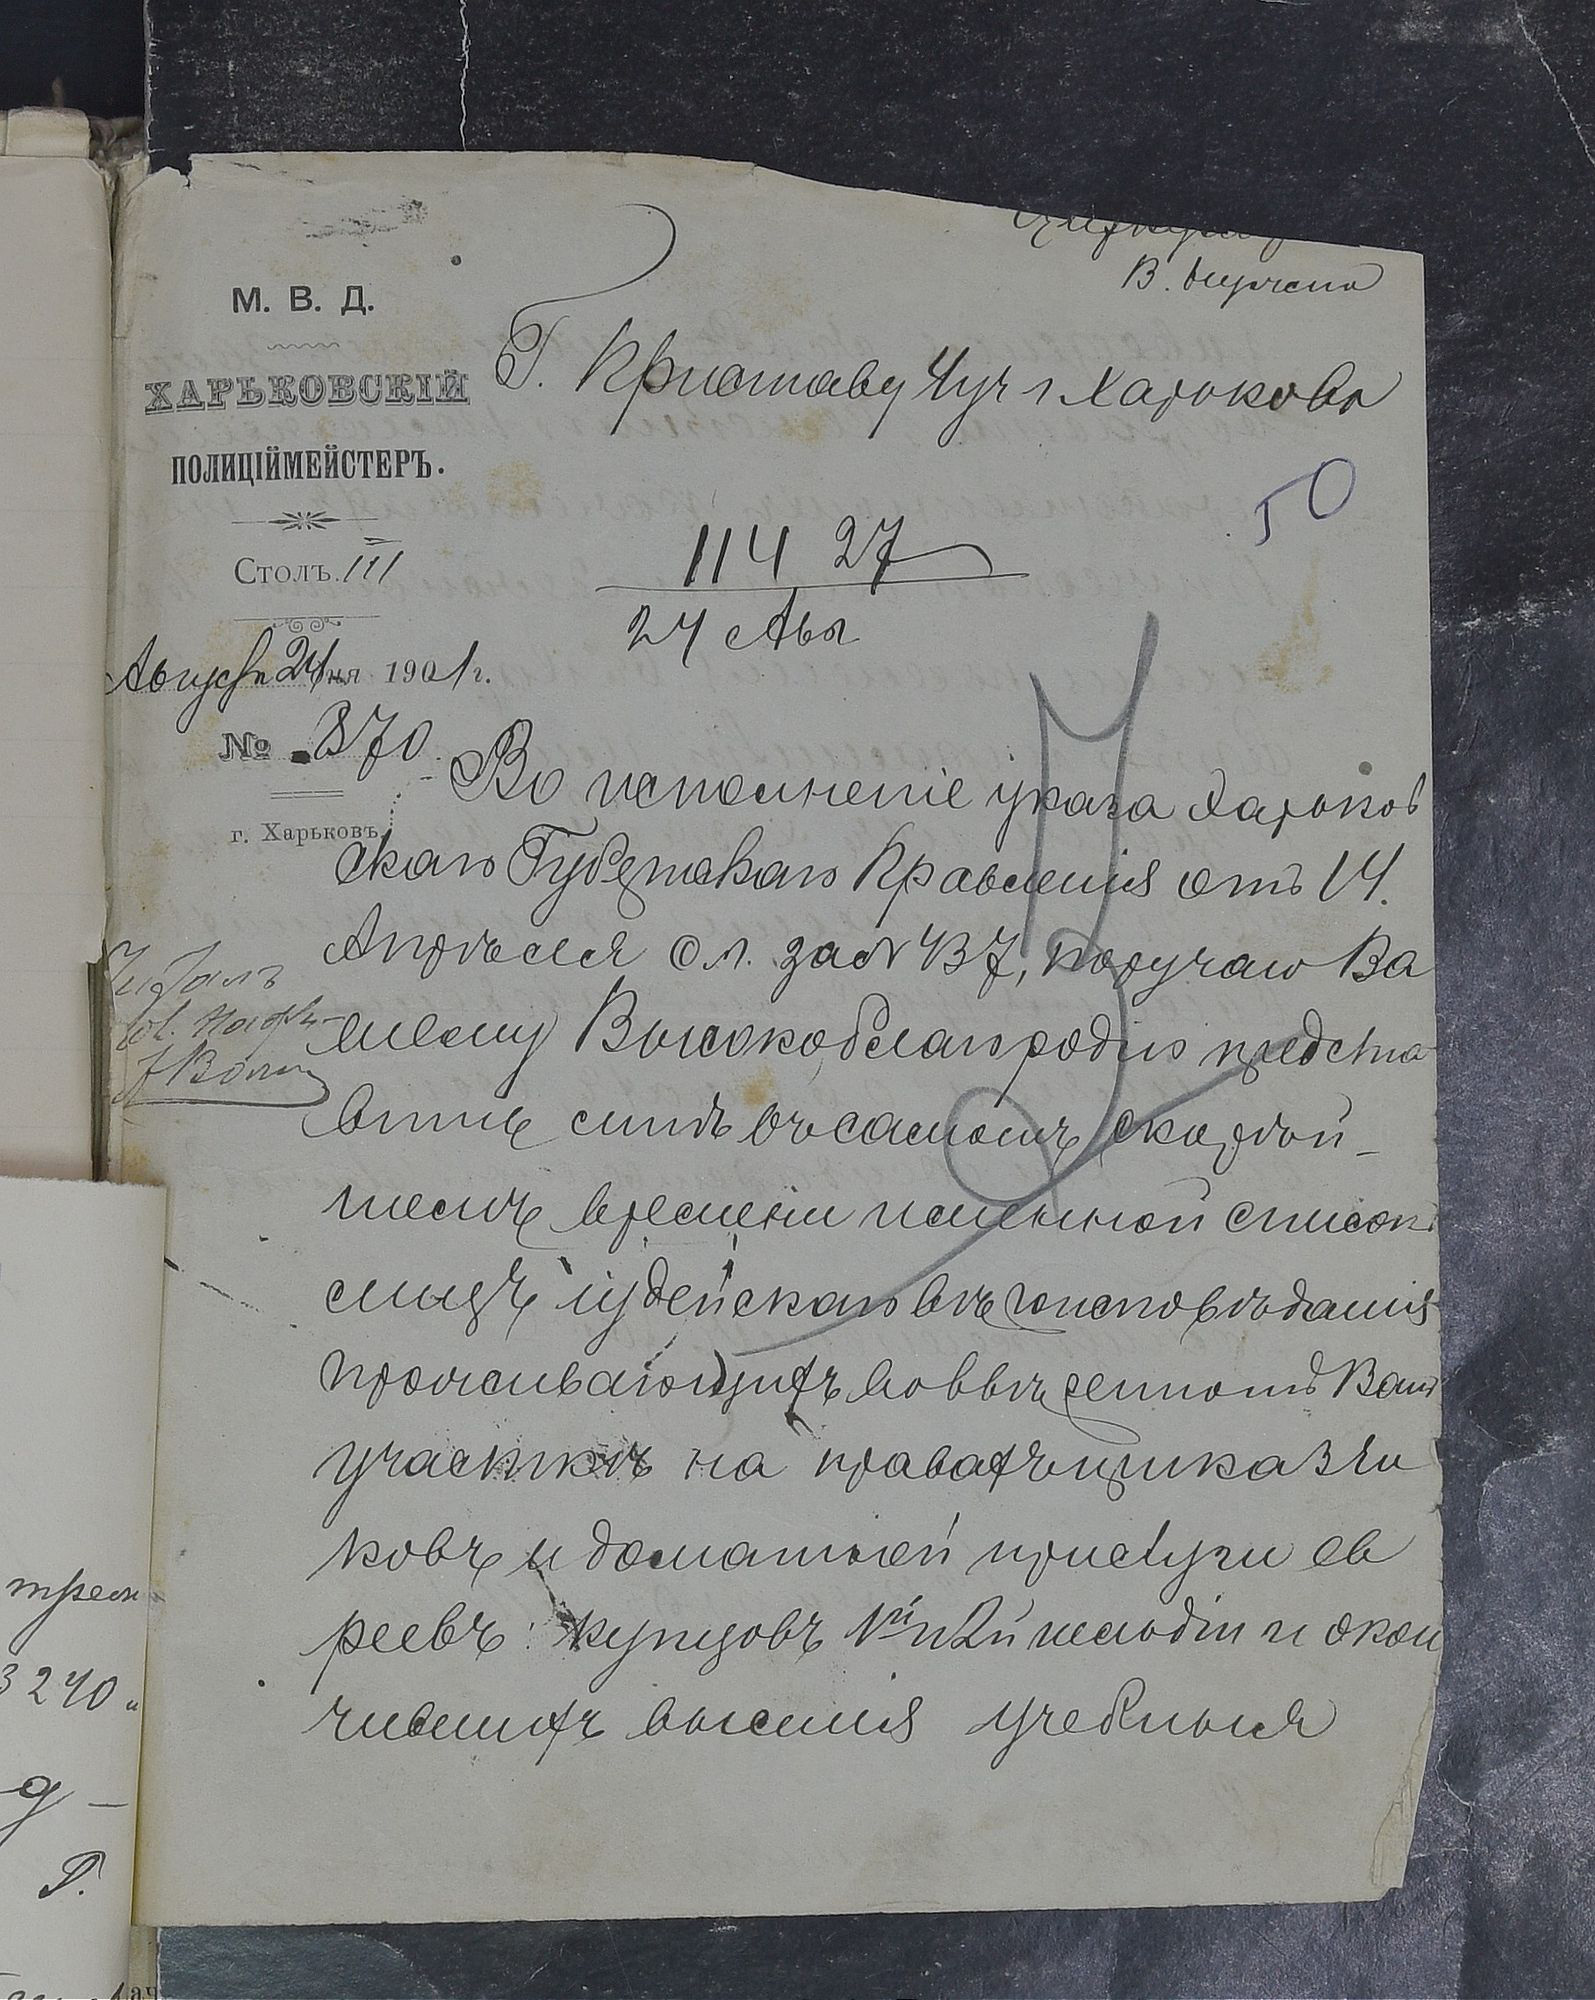 В. Спѣшно
М. В. Д.
ХАРЬКОВСКІЙ
ПОЛИЦІЙМЕЙСТЕРЪ.
Столъ III
Августа 24 дня 1901 г.
№ 370
г. Харьковъ.
Г. Приставу 4 уч г. Харькова
50
11427
24 Авг
Во исполненіе указа Харьков
скаго Губернскаго Правленія отъ 14
Апрѣля с.г. за № 437, поручаю Ва
шему Высокоблагородію предста
вить мнѣ въ самомъ скорѣй-
шемъ времени именной списокъ
лицъ іудейскаго вѣроисповѣданія
проживающихъ во ввѣренномъ Вамъ
участкѣ на правахъ прикащи
ковъ и домашней прислуги ев
реевъ: купцовъ 1й и 2й гильдіи и окон
чившихъ высшія учебныя
Читалъ
трем
3240